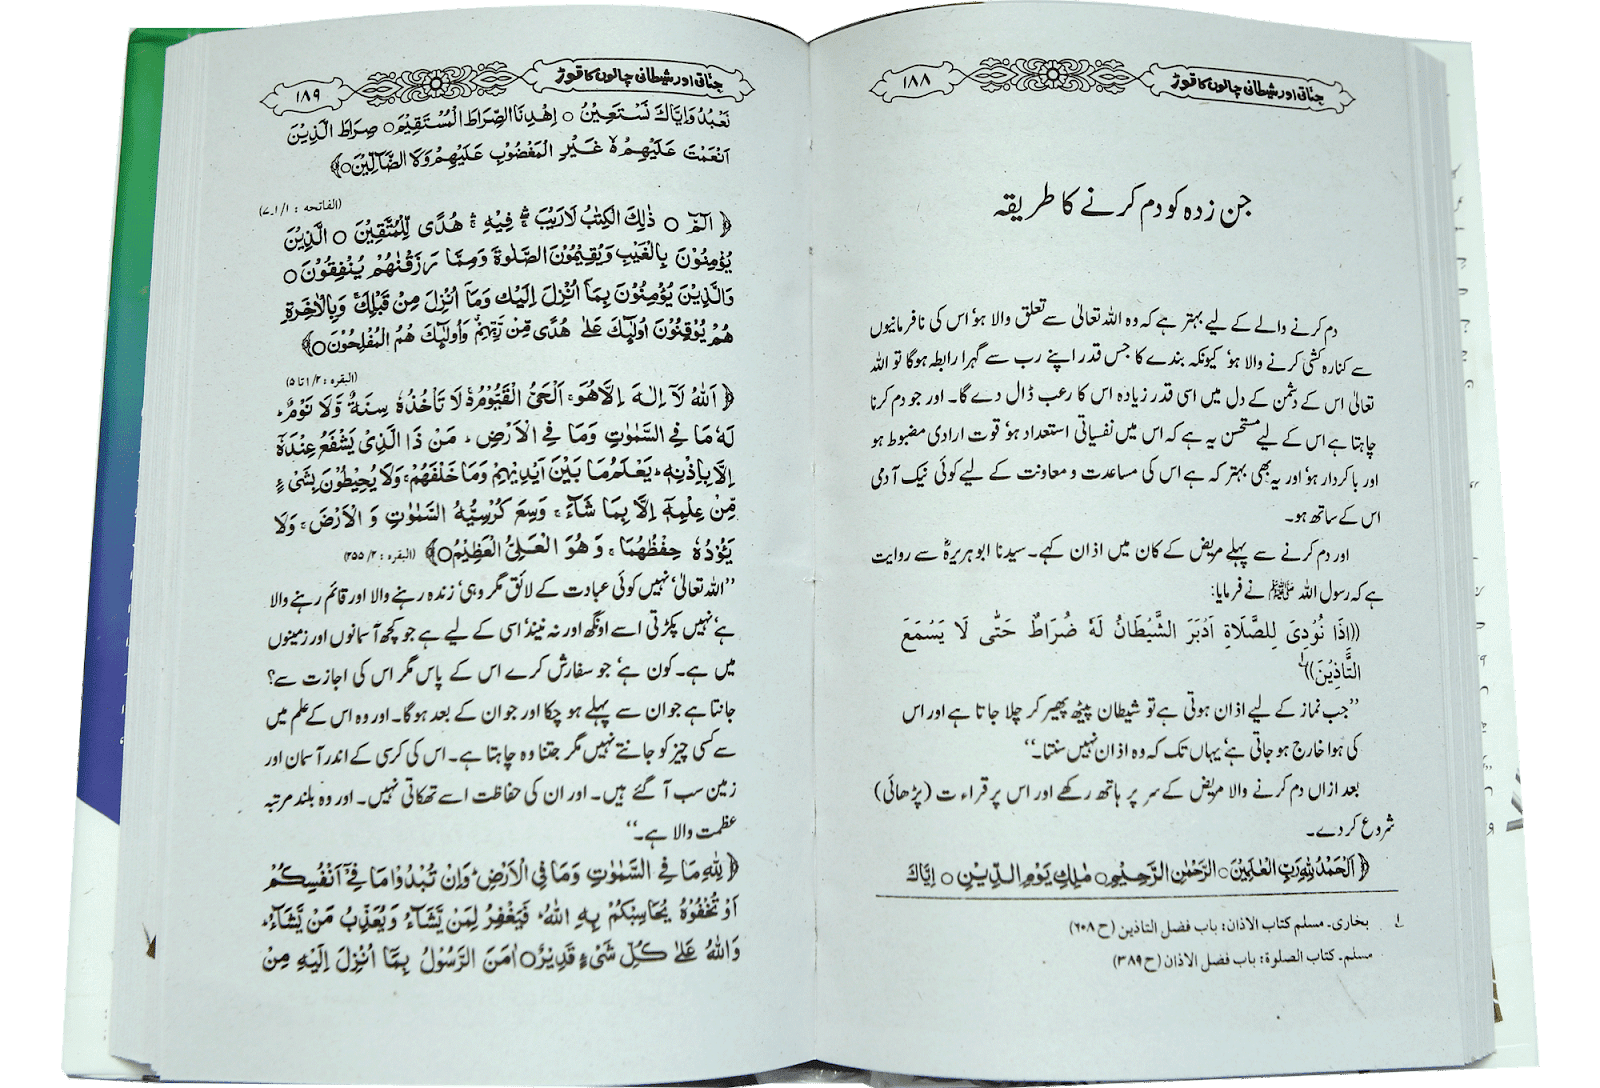 جناتی اور شیطانی چالوں کا توڑ
۱۸۸
جن زدہ کو دم کرنے کا طریقہ
دم کرنے والے کے لیے بہتر ہے کہ وہ اللہ تعالیٰ سے تعلق والا ہو، اس کی نافرمانیوں
سے کنارہ کشی کرنے والا ہو، کیونکہ بندے کا جس قدر اپنے رب سے گہرا رابطہ ہوگا تو اللہ
تعالیٰ اس کے دشمن کے دل میں اسی قدر زیادہ اس کا رعب ڈال دے گا۔ اور جو دم کرنا
چاہتا ہے اس کے لیے مستحسن یہ ہے کہ اس میں نفسیاتی استعداد ہو، قوت ارادی مضبوط ہو
اور باکردار ہو، اور یہ بھی بہتر کہ ہے اس کی مساعدت و معاونت کے لیے کوئی نیک آدمی
اس کے ساتھ ہو۔
اور دم کرنے سے پہلے مریض کے کان میں اذان کہے۔ سیدنا ابو ہریرہؓ سے روایت
ہے کہ رسول اللہ ﷺ نے فرمایا:
((اِذَا نُوْدِیَ لِلصَّلَاۃِ اَدْبَرَ الشَّیْطَانُ لَہٗ ضُرَاطٌ حَتّٰی لَا یَسْمَعَ
التَّاذِیْنَ))۱
’’جب نماز کے لیے اذان ہوتی ہے تو شیطان پیٹھ پھیر کر چلا جاتا ہے اور اس
کی ہوا خارج ہو جاتی ہے، یہاں تک کہ وہ اذان نہیں سنتا۔‘‘
بعد ازاں دم کرنے والا مریض کے سر پر ہاتھ رکھے اور اس پر قراءت (پڑھائی)
شروع کر دے۔
﴿اَلْحَمْدُ لِلّٰہِ رَبِّ الْعٰلَمِیْنَ○ الرَّحْمٰنِ الرَّحِیْمِ○ مٰلِکِ یَوْمِ الدِّیْنِ○ اِیَّاکَ
۱ بخاری۔ مسلم کتاب الاذان: باب فضل التاذین (ح۶۰۸)
مسلم۔ کتاب الصلوۃ: باب فضل الاذان (ح۳۸۹)
جناتی اور شیطانی چالوں کا توڑ
۱۸۹
نَعْبُدُ وَاِیَّاکَ نَسْتَعِیْنُ○ اِھْدِنَا الصِّرَاطَ الْمُسْتَقِیْمَ○ صِرَاطَ الَّذِیْنَ
اَنْعَمْتَ عَلَیْھِمْ ۵ۙ غَیْرِ الْمَغْضُوْبِ عَلَیْھِمْ وَلَا الضَّآلِّیْنَ○﴾
(الفاتحہ : ۱/۱۔۷)
﴿الٓمّٓ ○ ذٰلِکَ الْکِتٰبُ لَا رَیْبَ ۛ فِیْہِ ۛ ھُدًی لِّلْمُتَّقِیْنَ ○ الَّذِیْنَ
یُؤْمِنُوْنَ بِالْغَیْبِ وَیُقِیْمُوْنَ الصَّلٰوۃَ وَمِمَّا رَزَقْنٰھُمْ یُنْفِقُوْنَ○
وَالَّذِیْنَ یُؤْمِنُوْنَ بِمَآ اُنْزِلَ اِلَیْکَ وَمَآ اُنْزِلَ مِنْ قَبْلِکَ وَبِالْاٰخِرَۃِ
ھُمْ یُوْقِنُوْنَ اُولٰٓئِکَ عَلٰی ھُدًی مِّنْ رَّبِّھِمْ وَاُولٰٓئِکَ ھُمُ الْمُفْلِحُوْنَ○﴾
(البقرہ : ۱/۲ تا ۵)
﴿اَللّٰہُ لَآ اِلٰہَ اِلَّا ھُوَ۔ اَلْحَیُّ الْقَیُّوْمُ۔ لَا تَاْخُذُہٗ سِنَۃٌ وَّلَا نَوْمٌ۔
لَہٗ مَا فِی السَّمٰوٰتِ وَمَا فِی الْاَرْضِ۔ مَنْ ذَا الَّذِیْ یَشْفَعُ عِنْدَہٗ
اِلَّا بِاِذْنِہٖ۔ یَعْلَمُ مَا بَیْنَ اَیْدِیْھِمْ وَمَا خَلْفَھُمْ۔ وَلَا یُحِیْطُوْنَ بِشَیْءٍ
مِّنْ عِلْمِہٖٓ اِلَّا بِمَا شَآءَ۔ وَسِعَ کُرْسِیُّہُ السَّمٰوٰتِ وَ الْاَرْضَ۔ وَلَا
یَؤُدُہٗ حِفْظُھُمَا۔ وَھُوَ الْعَلِیُّ الْعَظِیْمُ○﴾ (البقرہ : ۲/۲۵۵)
’’اللہ تعالیٰ‘ نہیں کوئی عبادت کے لائق مگر وہی، زندہ رہنے والا اور قائم رہنے والا
ہے، نہیں پکڑتی اسے اونگھ اور نہ نیند، اسی کے لیے ہے جو کچھ آسمانوں اور زمینوں
میں ہے۔ کون ہے، جو سفارش کرے اس کے پاس مگر اس کی اجازت سے؟
جانتا ہے جو ان سے پہلے ہو چکا اور جو ان کے بعد ہوگا۔ اور وہ اس کے علم میں
سے کسی چیز کو جانتے نہیں مگر جتنا وہ چاہتا ہے۔ اس کی کرسی کے اندر آسمان اور
زمین سب آ گئے ہیں۔ اور ان کی حفاظت اسے تھکاتی نہیں۔ اور وہ بلند مرتبہ
عظمت والا ہے۔‘‘
﴿لِلّٰہِ مَا فِی السَّمٰوٰتِ وَمَا فِی الْاَرْضِ۔ وَاِنْ تُبْدُوْا مَا فِیْٓ اَنْفُسِکُمْ
اَوْ تُخْفُوْہُ یُحَاسِبْکُمْ بِہِ اللّٰہُ۔ فَیَغْفِرُ لِمَنْ یَّشَآءُ وَیُعَذِّبُ مَنْ یَّشَآءُ۔
وَاللّٰہُ عَلٰی کُلِّ شَیْءٍ قَدِیْرٌ○ اٰمَنَ الرَّسُوْلُ بِمَآ اُنْزِلَ اِلَیْہِ مِنْ